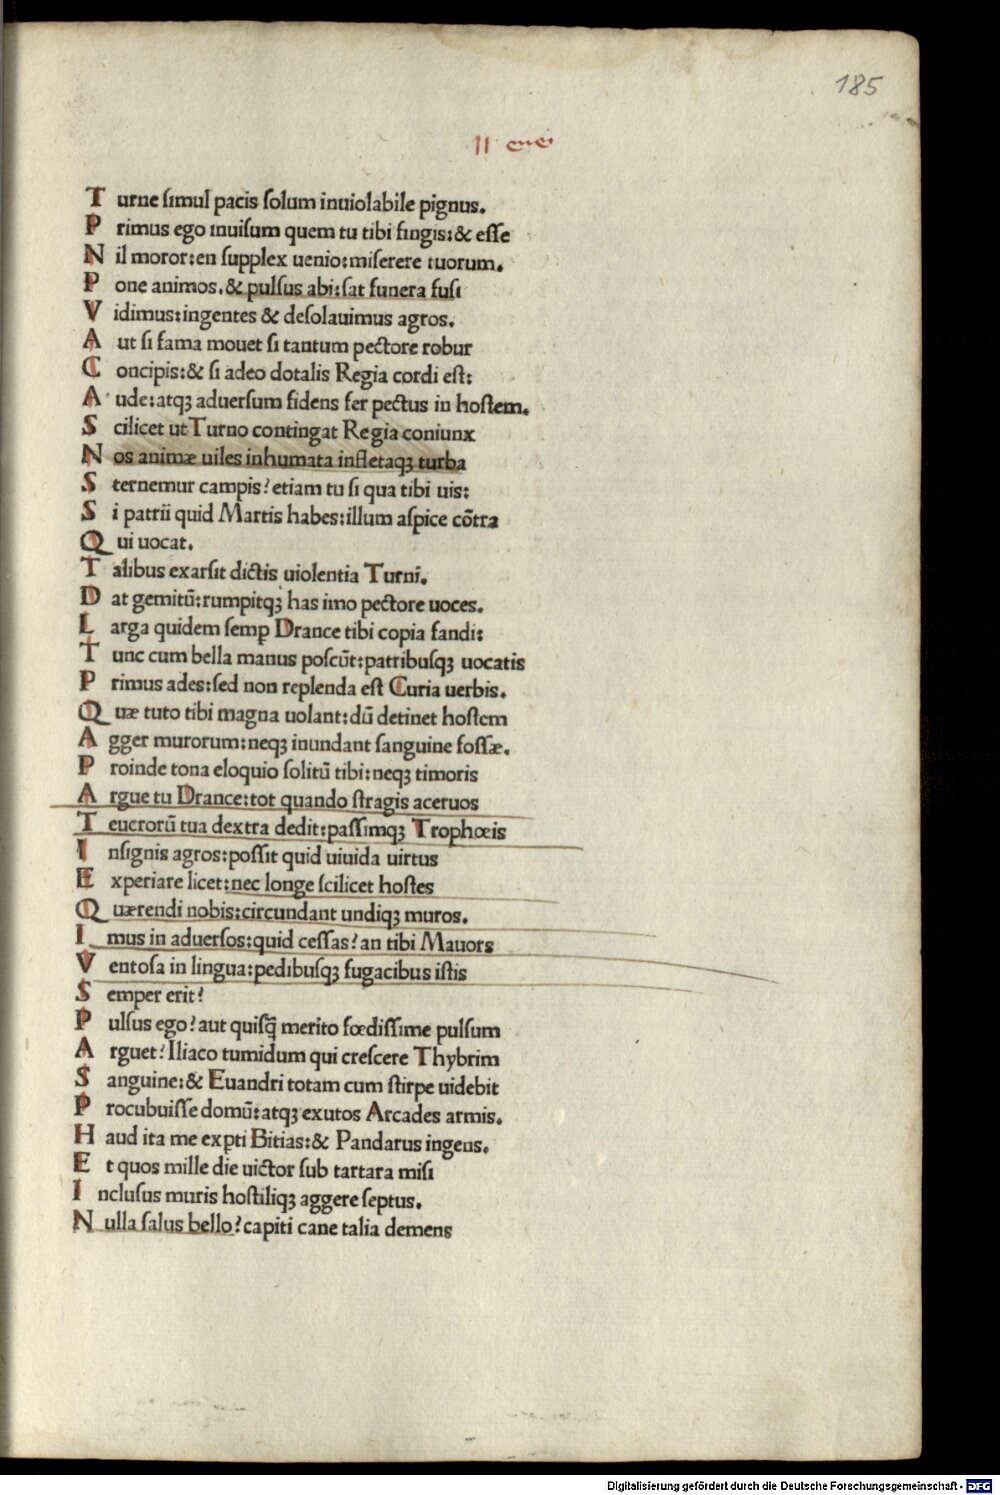 185
11 enei
Turne simul pacis solum inuiolabile pignus.
Primus ego inuisum quem tu tibi fingis:& esse
Nil moror:en supplex uenio:miserere tuorum.
Pone animos.& pulsus abi:sat funera fusi
Vidimus:ingentes & desolauimus agros.
Aut si fama mouet si tantum pectore robur
Concipis:& si adeo dotalis Regia cordi est:
Aude:atqꝫ aduersum fidens fer pectus in hostem.
Scilicet ut Turno contingat Regia coniunx
Nos animæ uiles inhumata infletaqꝫ turba
Sternemur campis? etiam tu si qua tibi uis:
Si patrii quid Martis habes:illum aspice cõtra
Qui uocat.
Talibus exarsit dictis uiolentia Turni.
Dat gemitũ:rumpitqꝫ has imo pectore uoces.
Larga quidem semꝑ Drance tibi copia fandi:
Tunc cum bella manus poscũt:patribusqꝫ uocatis
Primus ades:sed non replenda est Curia uerbis.
Quæ tuto tibi magna uolant:dũ detinet hostem
Agger murorum:neqꝫ inundant sanguine fossæ.
Proinde tona eloquio solitũ tibi:neqꝫ timoris
Argue tu Drance:tot quando stragis aceruos
Teucrorũ tua dextra dedit:passimqꝫ Trophœis
Insignis agros:possit quid uiuida uirtus
Experiare licet:nec longe scilicet hostes
Quærendi nobis:circundant undiqꝫ muros.
Imus in aduersos:quid cessas? an tibi Mauors
Ventosa in lingua:pedibusqꝫ fugacibus istis
Semper erit?
Pulsus ego? aut quisq̃ merito fœdissime pulsum
Arguet? Iliaco tumidum qui crescere Thybrim
Sanguine:& Euandri totam cum stirpe uidebit
Procubuisse domũ:atqꝫ exutos Arcades armis.
Haud ita me exꝑti Bitias:& Pandarus ingens.
Et quos mille die uictor sub tartara misi
Inclusus muris hostiliqꝫ aggere septus.
Nulla salus bello? capiti cane talia demens
Digitalisierung gefördert durch die Deutsche Forschungsgemeinschaft - DFG